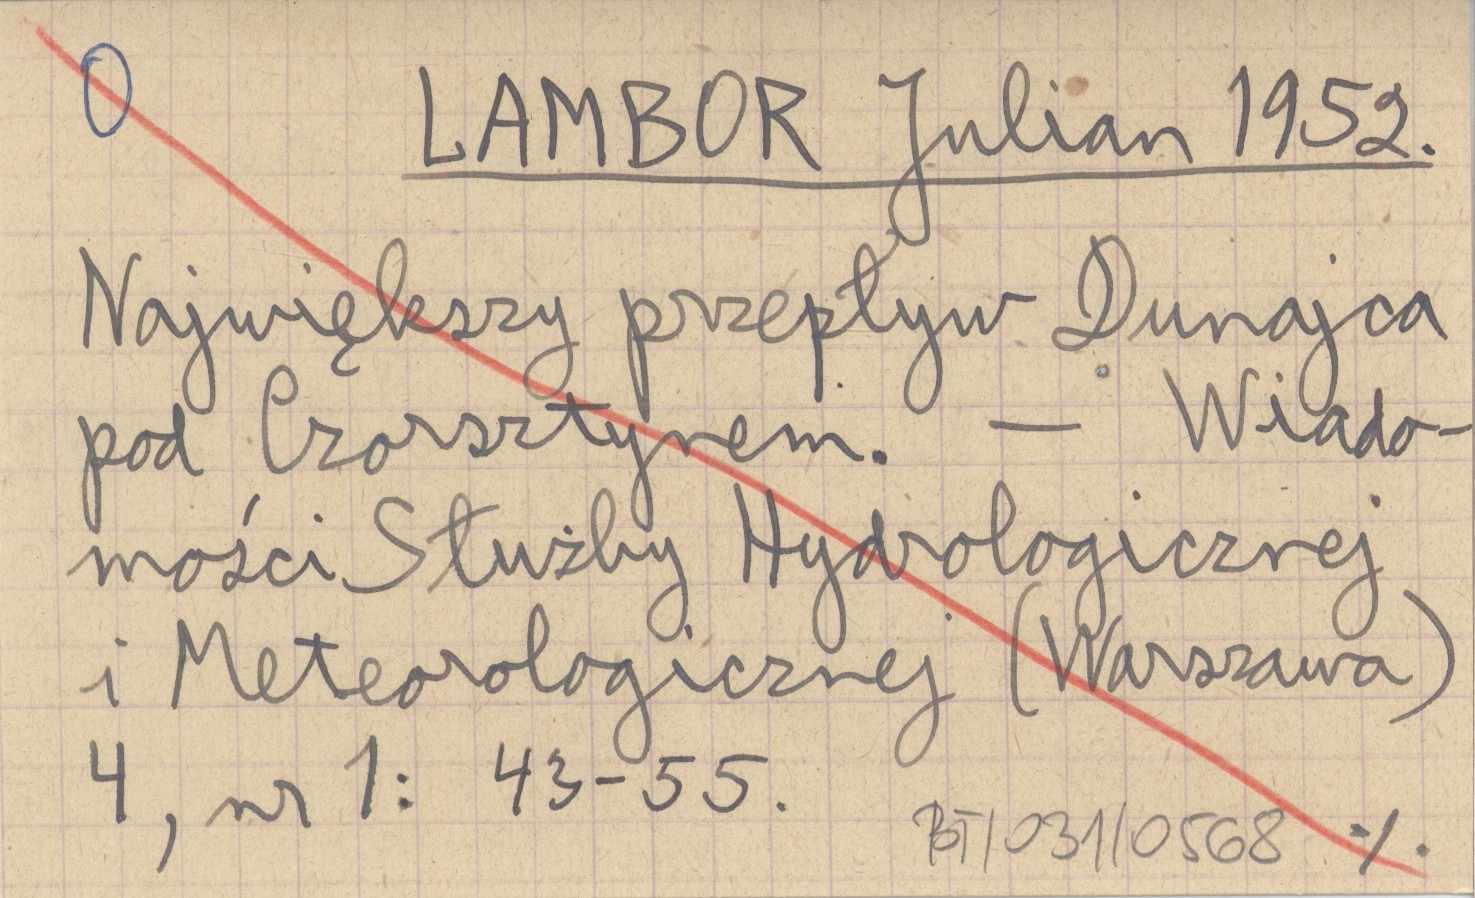 LAMBOR Julian 1952.
Największy przepływ Dunajca
pod Czorsztynem. — Wiado-
mości Służby Hydrologicznej
i Meteorologicznej (Warszawa)
4, nr 1: 43-55.
BT/031/0568 ·/.